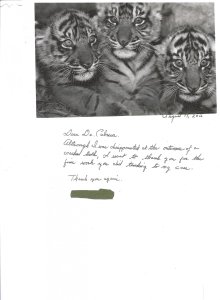 August 11, 202
Dear Dr. Cabrera
Although I was disappointed at the outcome of a
cracked tooth, I want to thank you for the
fine work you did tending to my care.
Thank you again